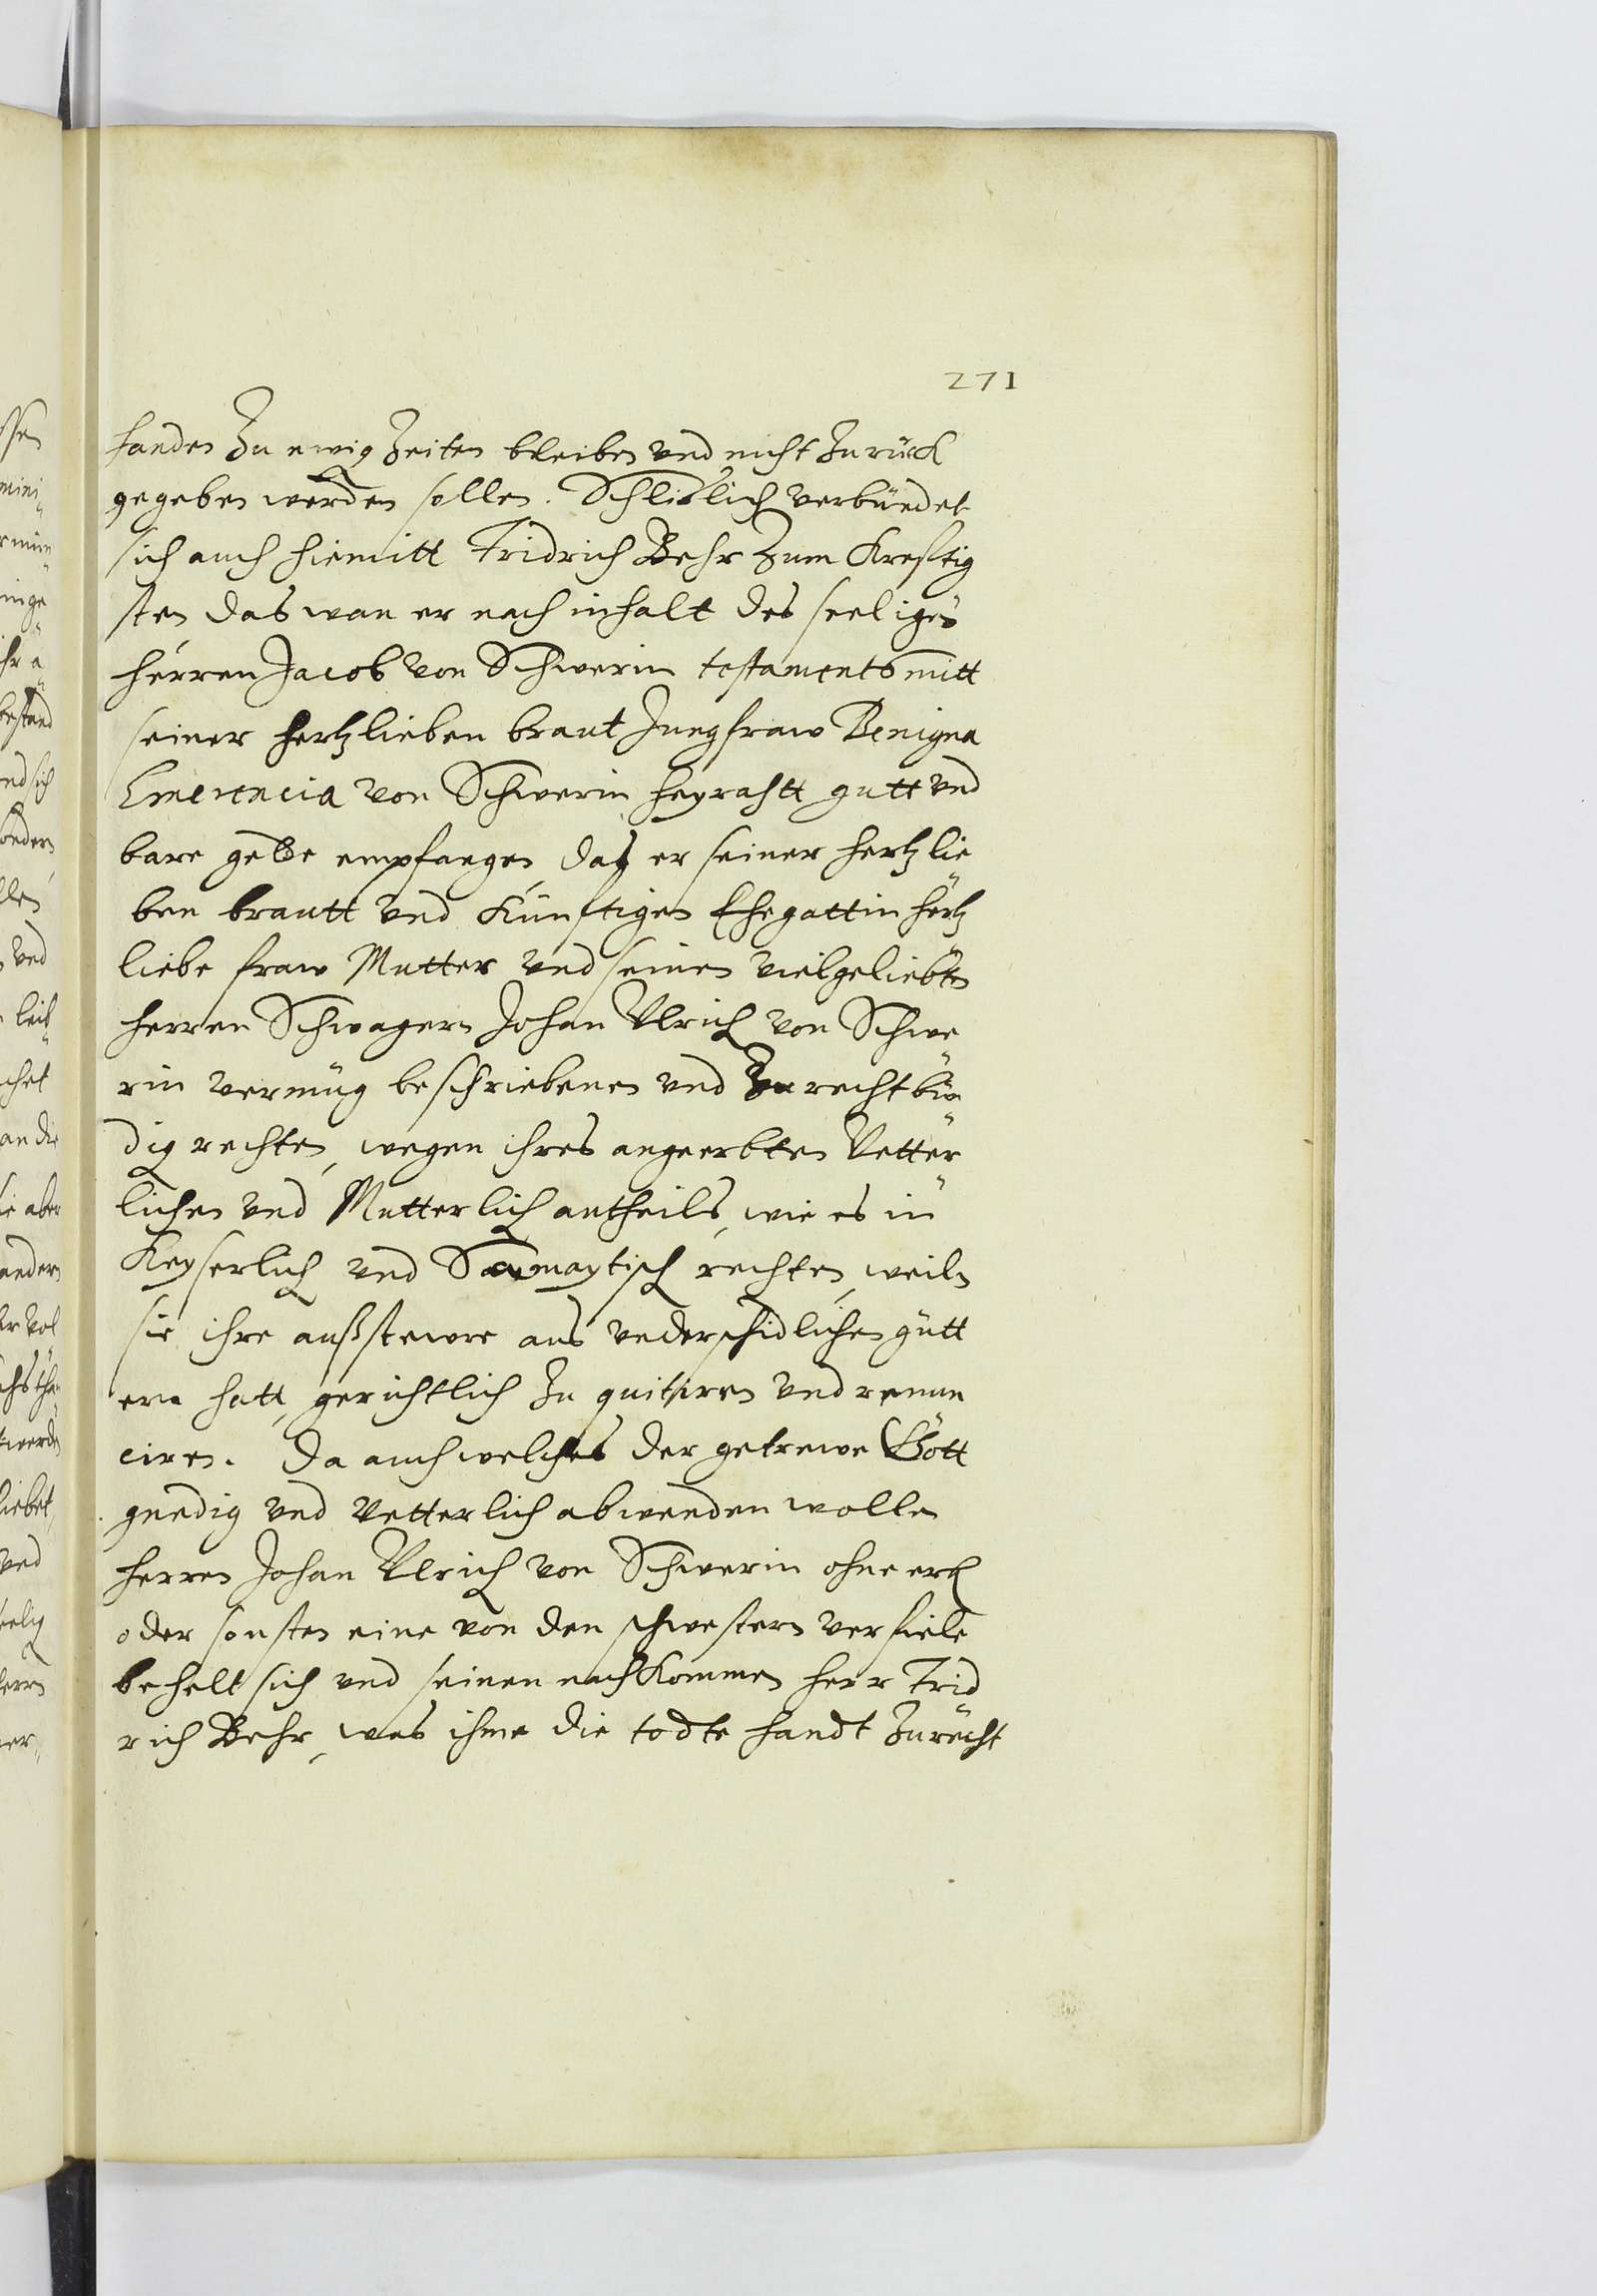 271
handen Zu ewig Zeiten bleiben vnd nicht Zurück
gegeben werden sollen. Schlißlich verbündet
sich auch hiemitt Fridrich Behr Zum Krefftig
sten das wan er nach inhalt des seeligen
herren Jacob von Schwerin testaments mitt
seiner hertzlieben braut Jungfraw Benigna
Emerencia von Schwerin heyrahtt gutt vnd
bare gelde empfangen das er seiner hertzlie
ben brautt vnd Künftigen Ehegattin hertz
liebe fraw Mutter vnd seinen vielgeliebten
herren Schwagern Johan Vlrich von Schwe
rin vermüg beschriebenen vnd Zu recht bün
dig rechten, wegen ihres angeerbten Vetter
lichen vnd Mutterlich antheils, wie es in
Keyserlich vnd Samaytisch rechten, weiln
sie ihre außstewre aus vnderschidlichen gütt
ern hatt, gerichtlich Zu quitiren vnd renun
ciren. Da auch welches der getrewe Gott
gnedig vnd Vetterlich abwenden wolle
herren Johan Vlrich von Schwerin ohne erb
oder sonsten eine von den schwestern verfiele
behelt sich vnd seinen nachkommen herr Frid
rich Behr, was ihme die todte handt Zurecht